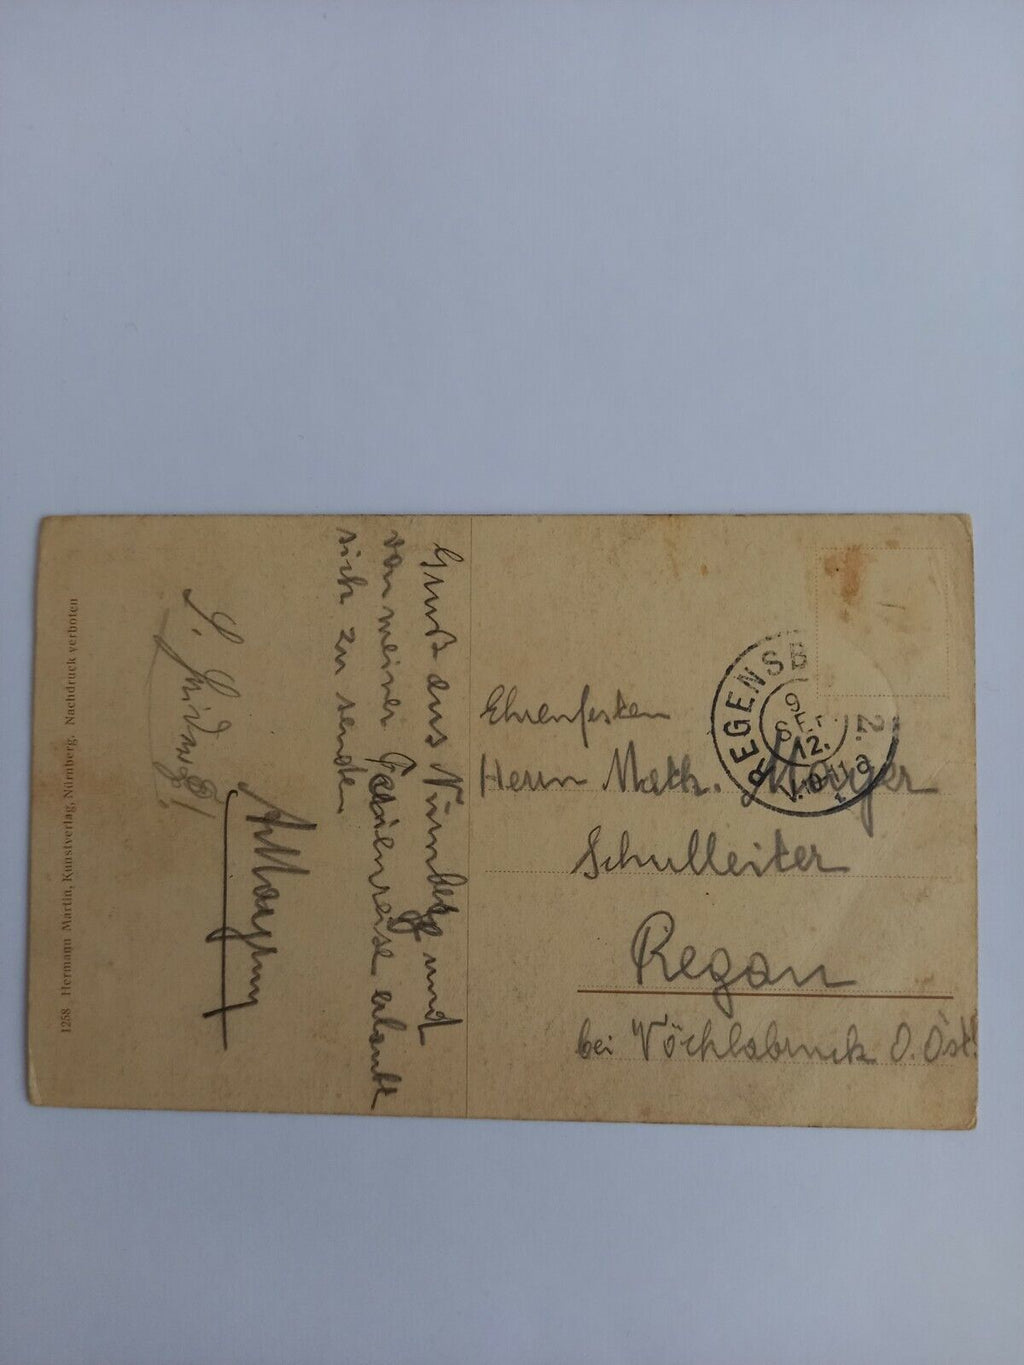 Gruß aus Nürnberg und
von meiner Ferienreise erlaubt
sich zu senden
Ehrenfesten
Herrn Math. Mayer
Schulleiter
Regau
bei Vöcklabruck O. Öst.
REGENSB
9
SEP.
12.
1258 Hermann Martin, Kunstverlag, Nürnberg. Nachdruck verboten